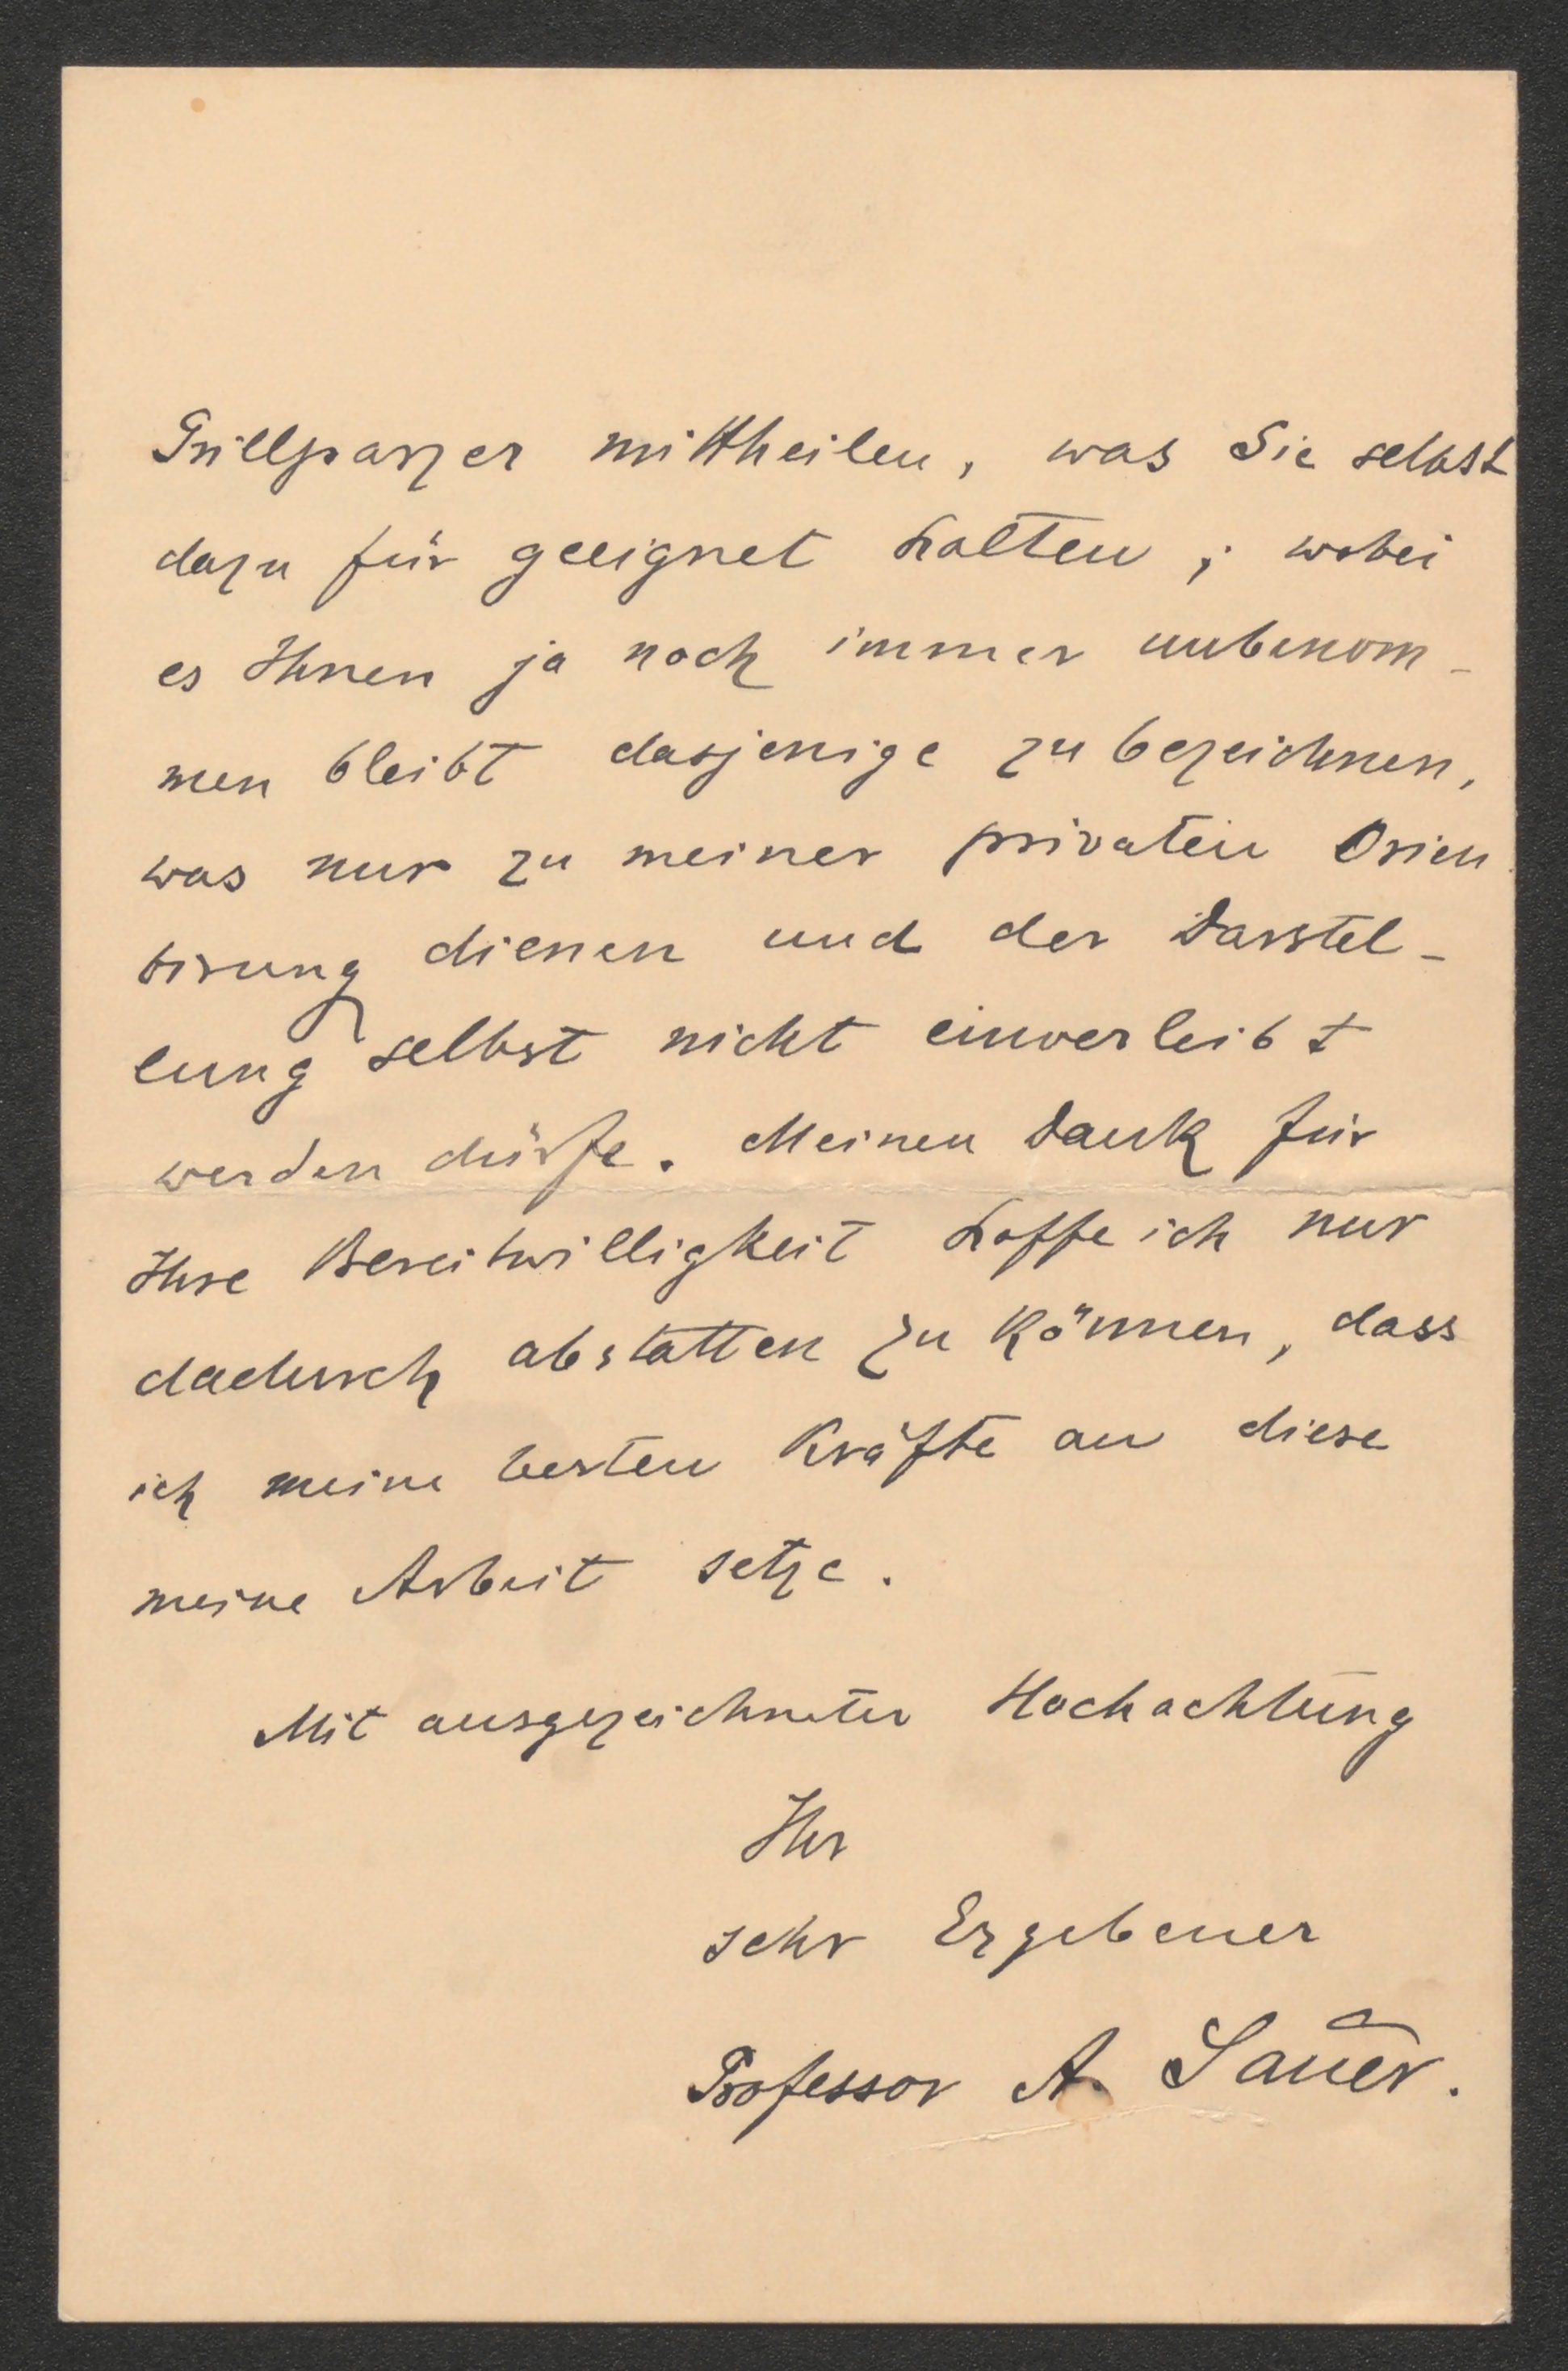 Grillparzer mittheilen, was Sie selbst
dazu für geeignet halten; wobei
es Ihnen ja noch immer unbenom-
men bleibt dasjenige zu bezeichnen,
was nur zu meiner privaten Orien
tirung dienen und der Darstel-
lung selbst nicht einverleibt
werden dürfe. Meinen Dank für
Ihre Bereitwilligkeit hoffe ich nur
dadurch abstatten zu können, dass
ich meine besten Kräfte an diese
meine Arbeit setze.
Mit ausgezeichneter Hochachtung
Ihr
sehr Ergebener
Professor A. Sauer.